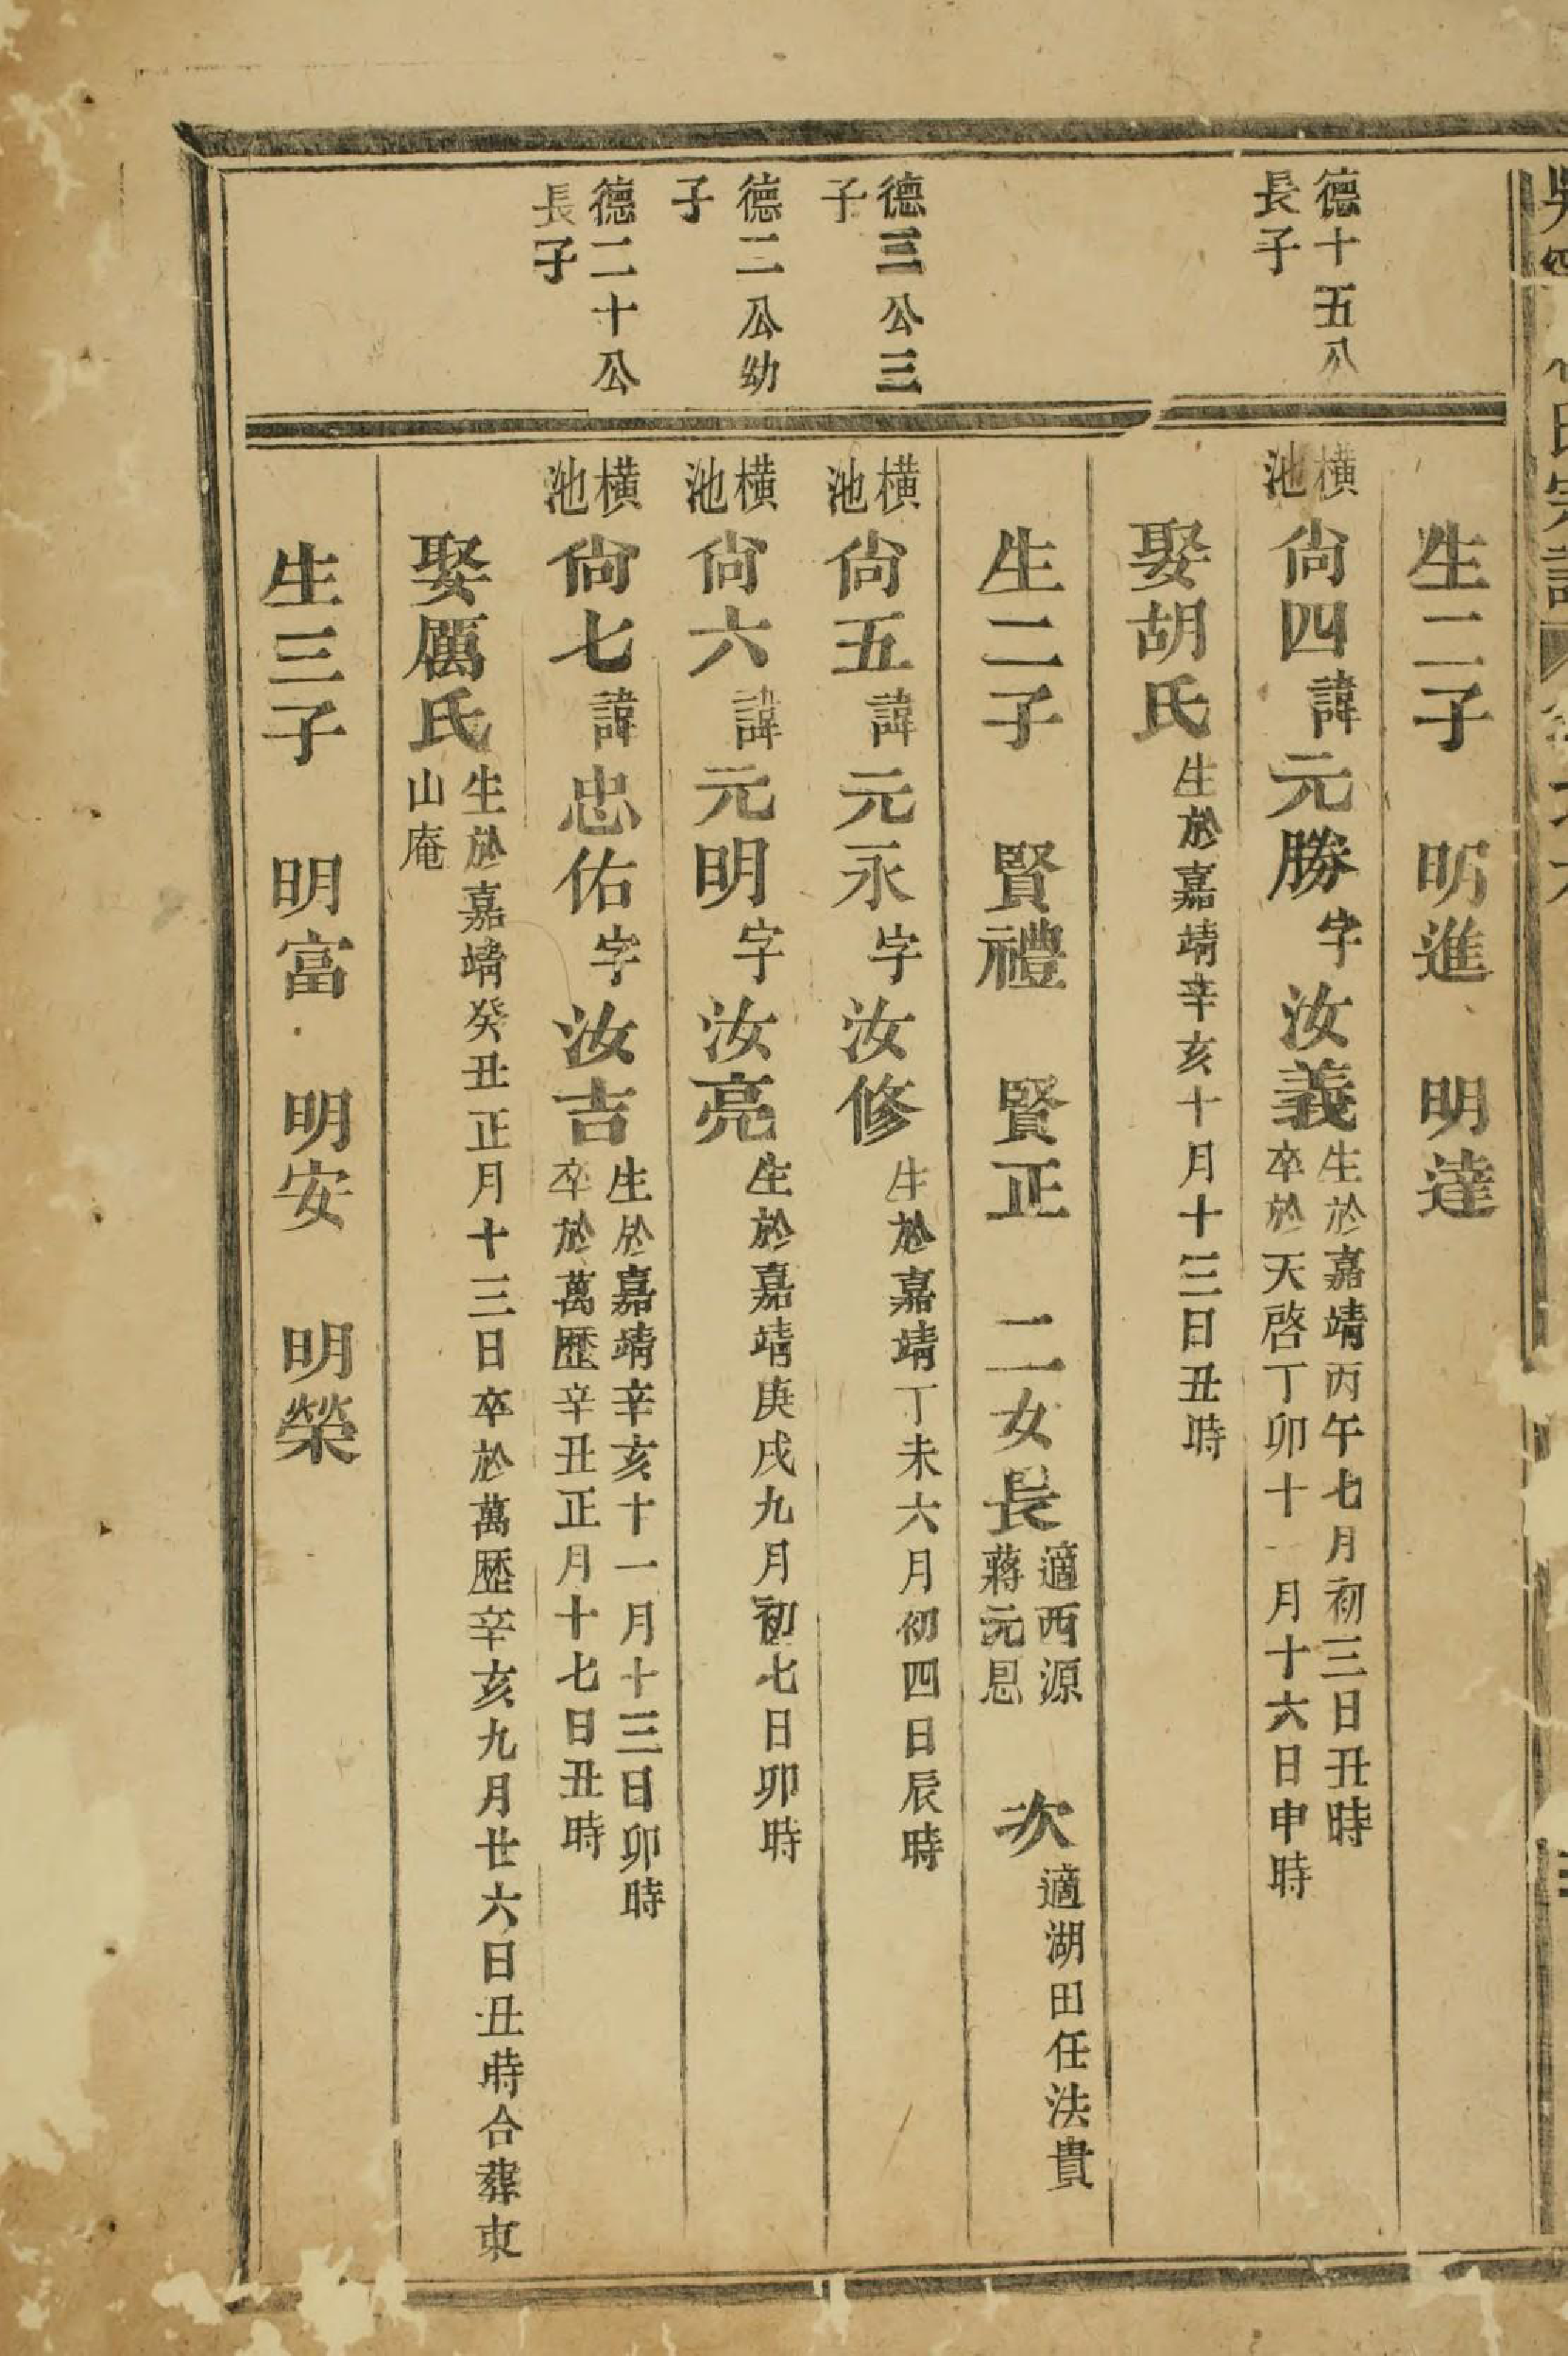 生二子 明進 明達
德十五公
長子
橫池 尙四 諱元勝 字汝義 生於嘉靖丙午七月初三日丑時
卒於天啓丁卯十一月十六日申時
娶胡氏 生於嘉靖辛亥十月十三日丑時
生二子 賢禮 賢正 二女 長 適西源
蔣元恩 次 適湖田任法貴
德三公三
子
橫池 尙五 諱元永 字汝修 生於嘉靖丁未六月初四日辰時
德二公幼
子
橫池 尙六 諱元明 字汝亮 生於嘉靖庚戌九月初七日卯時
德二十公
長子
橫池 尙七 諱忠佑 字汝吉 生於嘉靖辛亥十一月十三日卯時
卒於萬歷辛丑正月十七日丑時
娶厲氏 生於嘉靖癸丑正月十三日卒於萬歷辛亥九月廿六日丑時合葬東
山庵
生三子 明富 明安 明榮